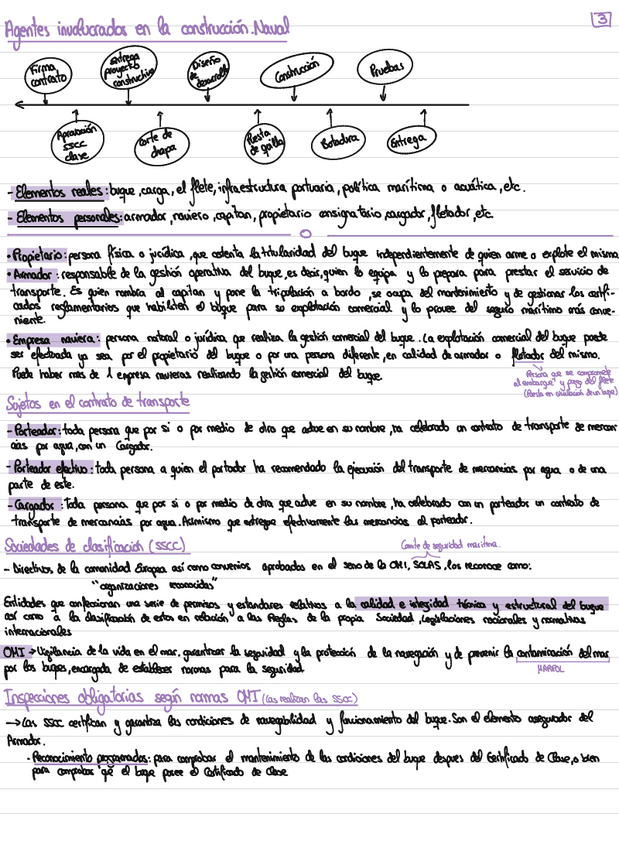 Agentes involucrados en la construcción Naval
3
Firma contrato
Entrega proyecto constructivo
Diseño de desarrollo
Construcción
Pruebas
Aprobación SSCC clase
Corte de chapa
Puesta de quilla
Botadura
Entrega
- Elementos reales: buque, carga, el flete, infraestructura portuaria, política marítima o acuática, etc.
- Elementos personales: armador, naviero, capitan, propietario consignatario, cargador, fletador, etc.
• Propietario: persona física o jurídica, que ostenta la titularidad del buque independientemente de quien arme o explote el mismo
• Armador: responsable de la gestión operativa del buque, es decir, quien lo equipa y lo prepara para prestar el servicio de
transporte. Es quien nombra al capitan y pone la tripulación a bordo, se ocupa del mantenimiento y de gestionar los certifi-
cados reglamentarios que habiliten el buque para su explotación comercial y lo provee del seguro marítimo más conve-
niente.
• Empresa naviera: persona natural o jurídica que realiza la gestión comercial del buque. La explotación comercial del buque puede
ser efectuada ya sea por el propietario del buque o por una persona diferente, en calidad de armador o fletador del mismo.
Puede haber mas de 1 empresa navieras realizando la gestión comercial del buque.
Persona que se compromete
al embarque y pago del flete
Sujetos en el contrato de transporte
- Porteador: toda persona que por si o por medio de otra que actue en su nombre, ha celebrado un contrato de transporte de mercan
cías por agua, con un Cargador.
- Porteador efectivo: toda persona a quien el portador ha recomendado la ejecución del transporte de mercancias por agua o de una
parte de este.
- Cargador: Toda persona que por si o por medio de otra que actue en su nombre, ha celebrado con un porteador un contrato de
transporte de mercancias por agua. Asimismo que entregue efectivamente las mercancias al porteador.
Sociedades de clasificación (SSCC)
Comite de seguridad maritima.
- Directivas de la comunidad Europea así como convenios aprobados en el seno de la OMI, SOLAS, los reconoce como:
"organizaciones reconocidas"
Entidades que confeccionan una serie de permisos y estandares relativos a la calidad e integridad técnica y estructural del buque
así como a la clasificación de estos en relación a las Reglas de la propia Sociedad, legislaciones nacionales y normativas
internacionales
OMI → Vigilancia de la vida en el mar, garantizar la seguridad y la protección de la navegación y de prevenir la contaminación del mar
por los buques, encargada de establecer normas para la seguridad.
MARPOL
Inspecciones obligatorias según normas OMI (las realizan las SSCC)
→ Las SSCC certifican y garantiza las condiciones de navegabilidad y funcionamiento del buque. Son el elemento asegurador del
Armador.
• Reconocimiento programados: para comprobar el mantenimiento de las condiciones del buque despues del Certificado de Clase, o bien
para comprobar que el buque posee el Certificado de Clase